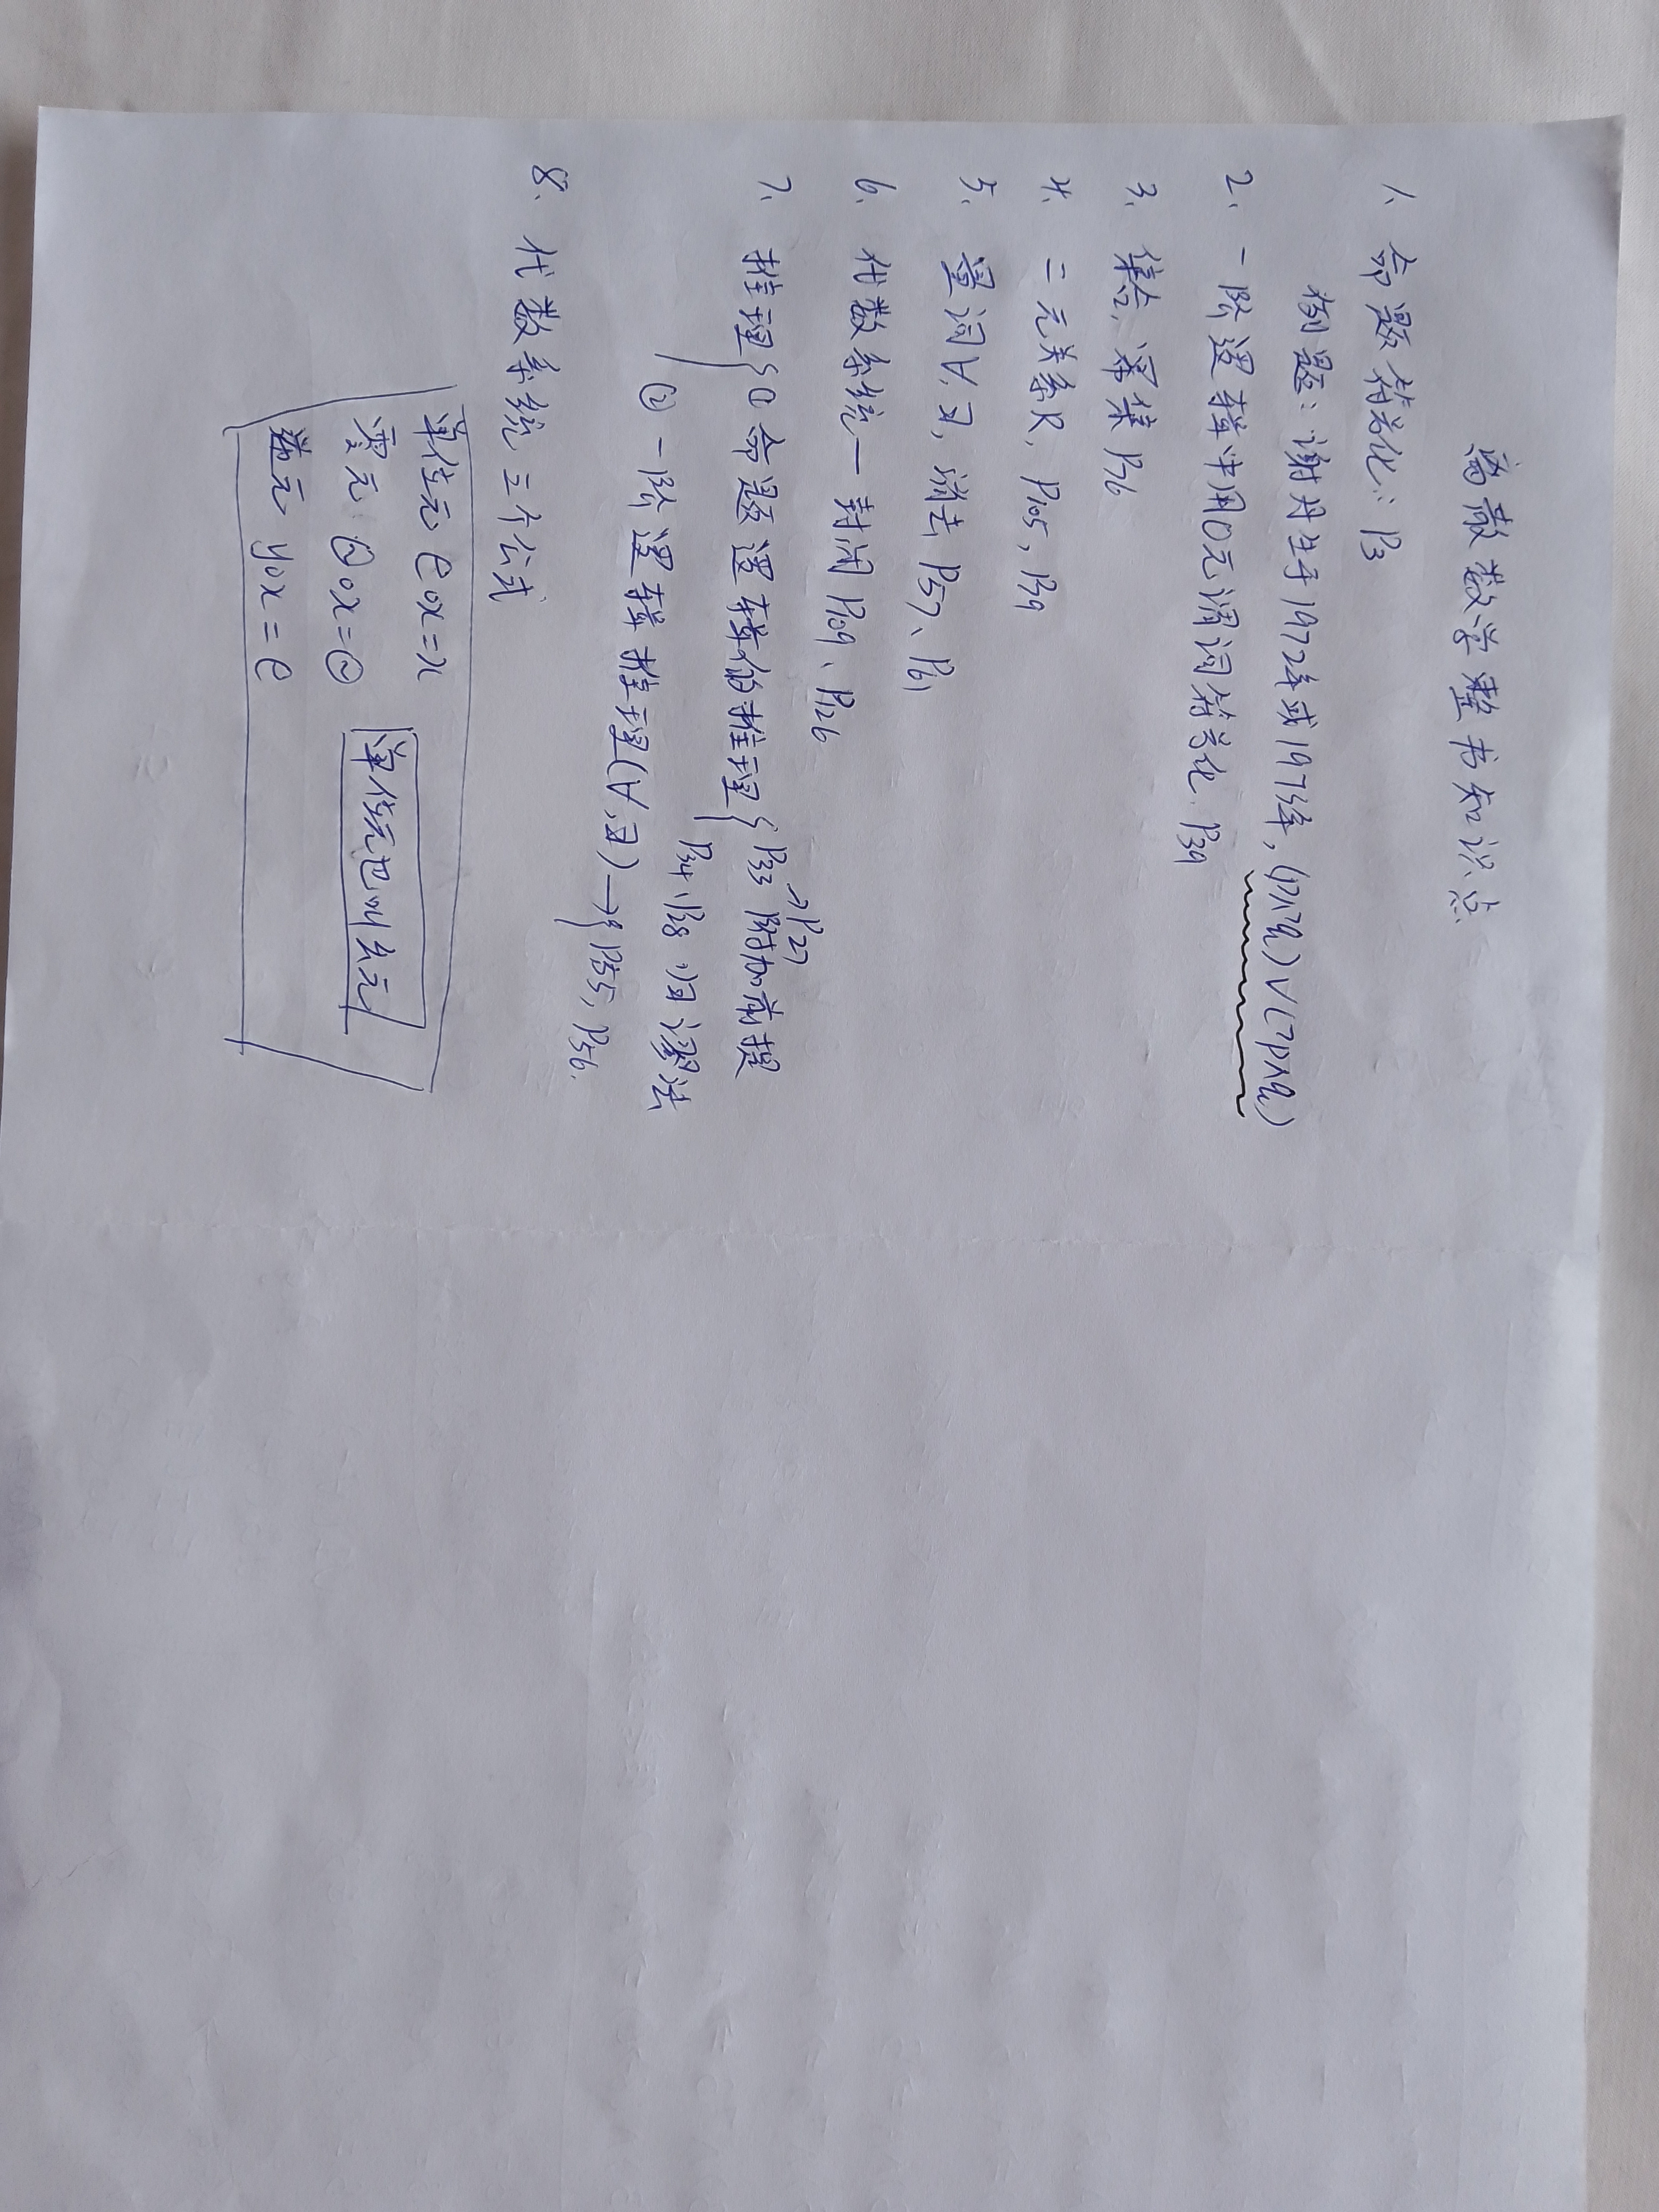 离散数学整书知识点
1、命题符号化：P3
例题：谢丹生于1972年或1973年，(p∧¬q)∨(¬p∧q)
2、一阶逻辑中用0元谓词符号化 P39
3、集合，幂集 P76
4、二元关系R，P105，P39
5、量词∀，∃，消去 P57、P61
6、代数系统—封闭 P109、P126
→P27
7、推理 { ① 命题逻辑的推理 { P33 附加前提
P34、P28 归谬法
② 一阶逻辑推理(∀,∃) → { P55, P56.
8、代数系统三个公式
单位元 e∘x=x
单位元也叫幺元
零元 θ∘x=θ
逆元 y∘x=e